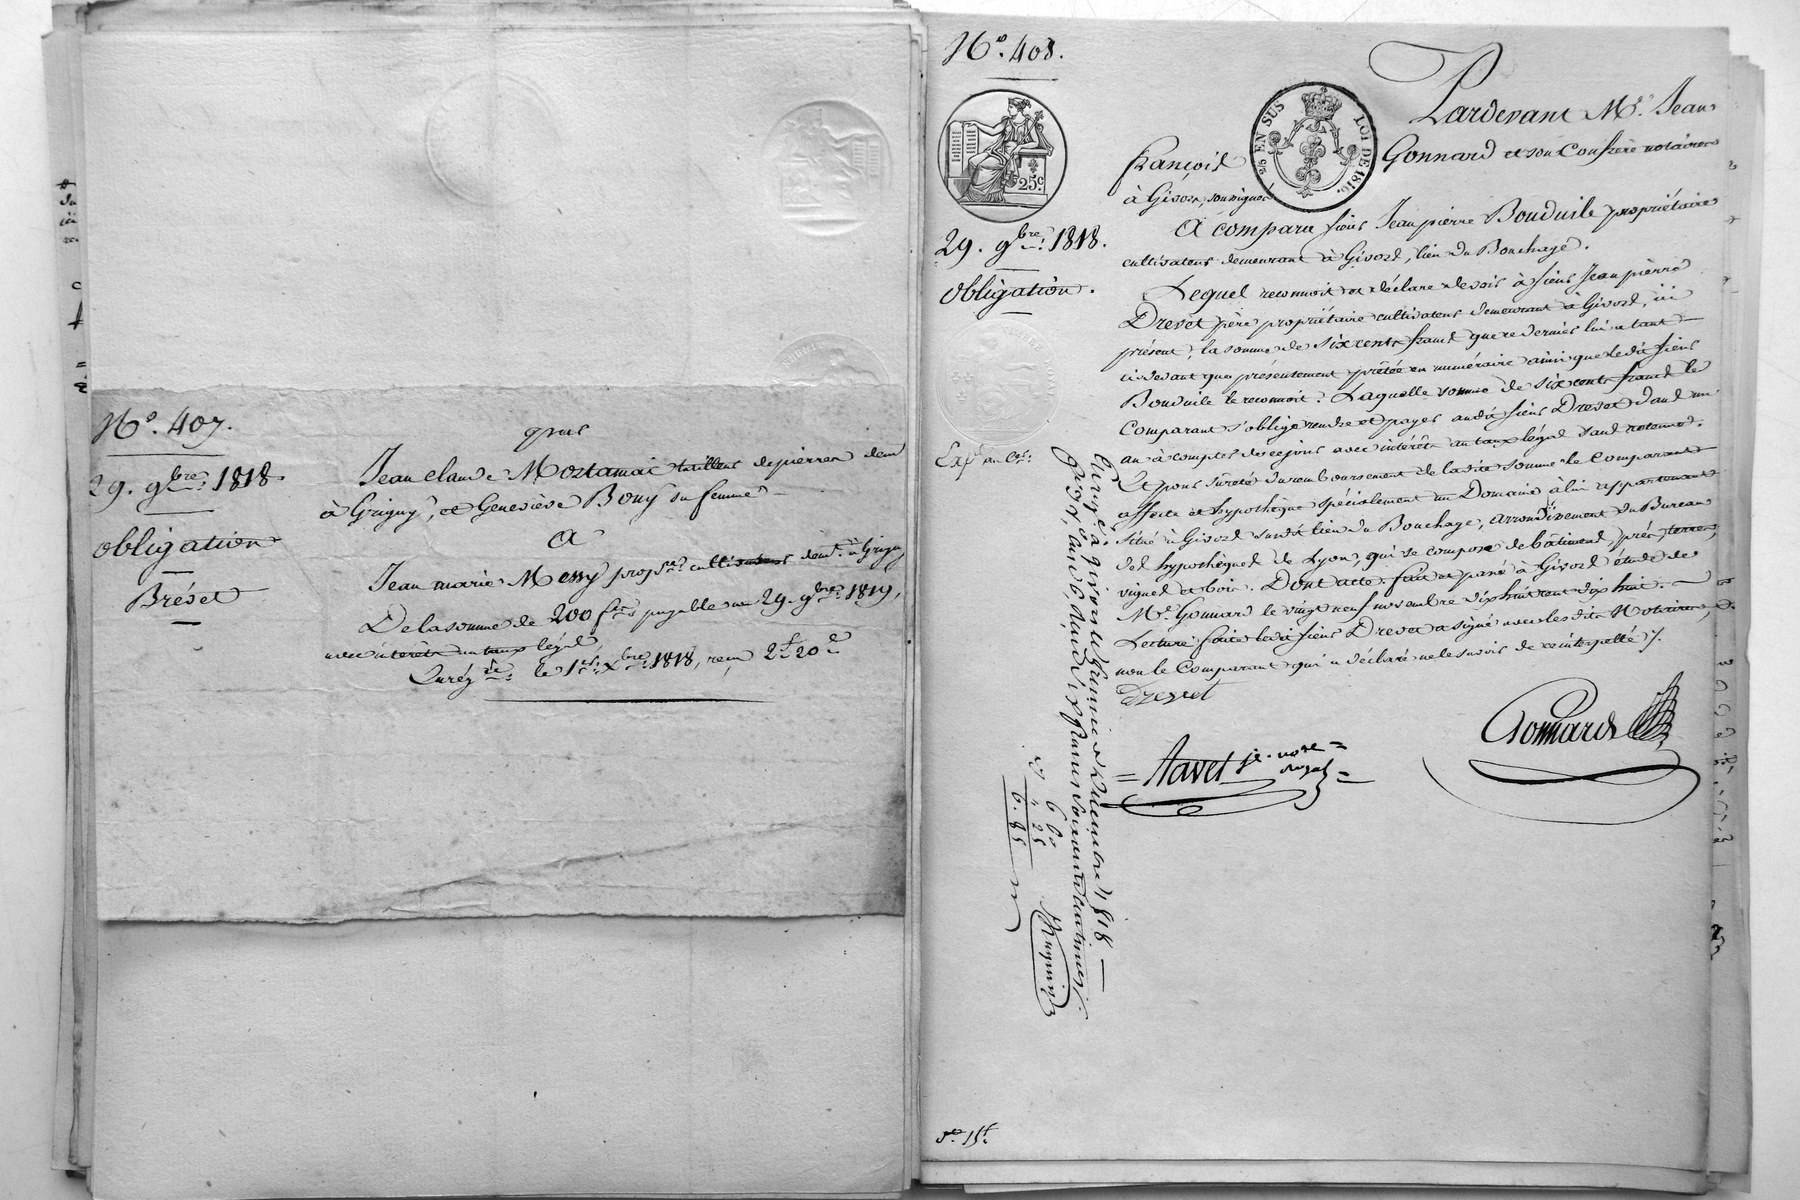 N.o 407.
29. 9bre. 1818.
Obligation
Brévet
par
Jean Claude Mortamai tailleur de pierres dem.
à Grigny, et Geneviève Bony sa femme
A
Jean marie Messy prop.re cultivateur demt. à Grigny
De la somme de 200 frs payable au 29. 9bre 1819,
avec intérêts au taux légal,
Enrég.té le 1er. Xbre. 1818, reçu 2f 20c
N.o 408.
25c
2/5 EN SUS LOI DE 1816.
29. 9bre. 1818.
Obligation.
Pardevant Me. Jean
françois Gonnard et son Confrère notaires
à Givors, soussignés
A comparu sieur Jean pierre Bonduile propriétaire
cultivateur demeurant à Givors, lieu du Bouchage.
Lequel reconnoit et déclare devoir à sieur Jean pierre
Drevet père propriétaire cultivateur demeurant à Givors, ici
présent, la somme de six cents francs que ce dernier lui a tant
ci devant que présentement prêtée en numéraire ainsi que ledit sieur
Bonduile le reconnoit. Laquelle somme de six cents francs le
Comparant s'oblige rendre et payer audit sieur Drevet dans un
an à compter de ce jour avec intérêts au taux légal sans retenue.
Et pour sûreté du remboursement de la dite somme le Comparant
affecte et hypothèque spécialement un Domaine à lui appartenant
situé à Givors susdit lieu du Bouchage, arrondissement du Bureau
des hypothèques de Lyon, qui se compose de bâtiment, prés, terres,
vignes et bois. Dont acte. fait et passé à Givors étude de
Me. Gonnard le vingt neuf novembre dix huit cent dix huit.
Lecture faite ledit sieur Drevet a signé avec lesdits Notaires,
non le Comparant qui a déclaré ne le savoir de ce interpellé /.
Drevet
Gonnard
= Navet je. nore =
royal =
Enregé à givors le premier Decembre 1818
6 60
25
6.85